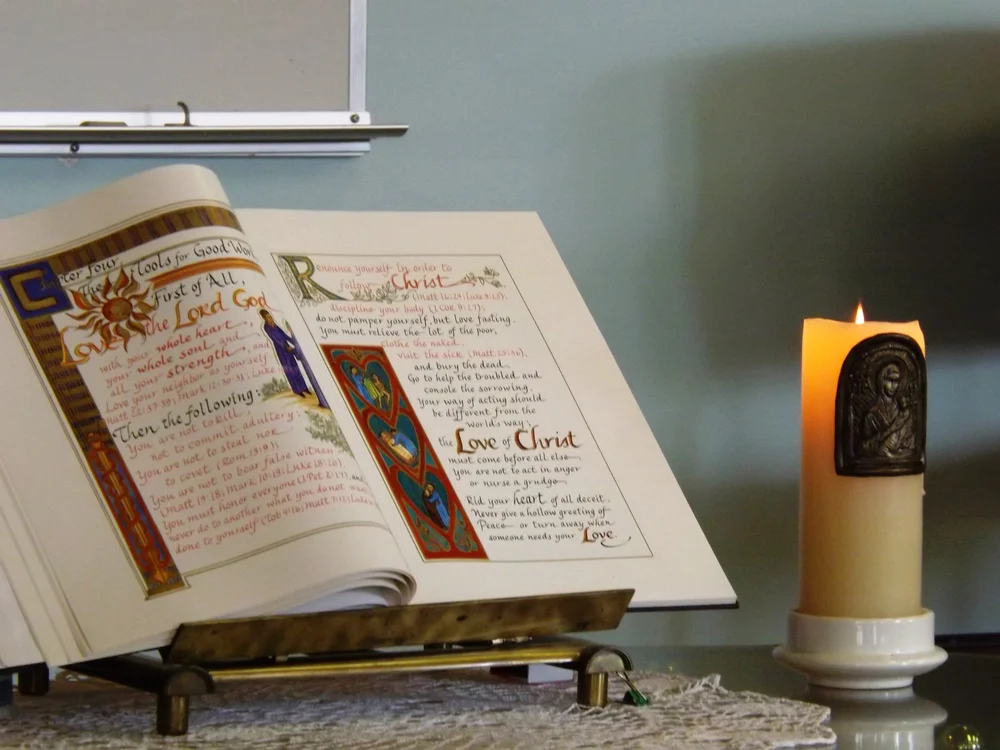 Chapter four
The Tools for Good Work
First of All,
Love the Lord God
with your whole heart,
your whole soul and
all your strength, and
Love your neighbor as yourself
(Matt 22:37-39; Mark 12:30-31; Luke
Then the following:
You are not to kill,
not to commit adultery;
You are not to steal nor
to covet (Rom 13:9);
You are not to bear false witness
(Matt 19:18; Mark 10:19; Luke 18:20),
You must honor everyone (1 Pet 2:17), and
never do to another what you do not want
done to yourself (Tob 4:16; Matt 7:12; Luke
Renounce yourself in order to
follow Christ
(Matt 16:24; Luke 9:23);
discipline your body (1 Cor. 9:27);
do not pamper yourself, but love fasting.
You must relieve the lot of the poor,
clothe the naked,
visit the sick (Matt. 25:36),
and bury the dead.
Go to help the troubled and
console the sorrowing.
Your way of acting should
be different from the
world's way;
the Love of Christ
must come before all else.
You are not to act in anger
or nurse a grudge.
Rid your heart of all deceit.
Never give a hollow greeting of
Peace or turn away when
someone needs your Love.